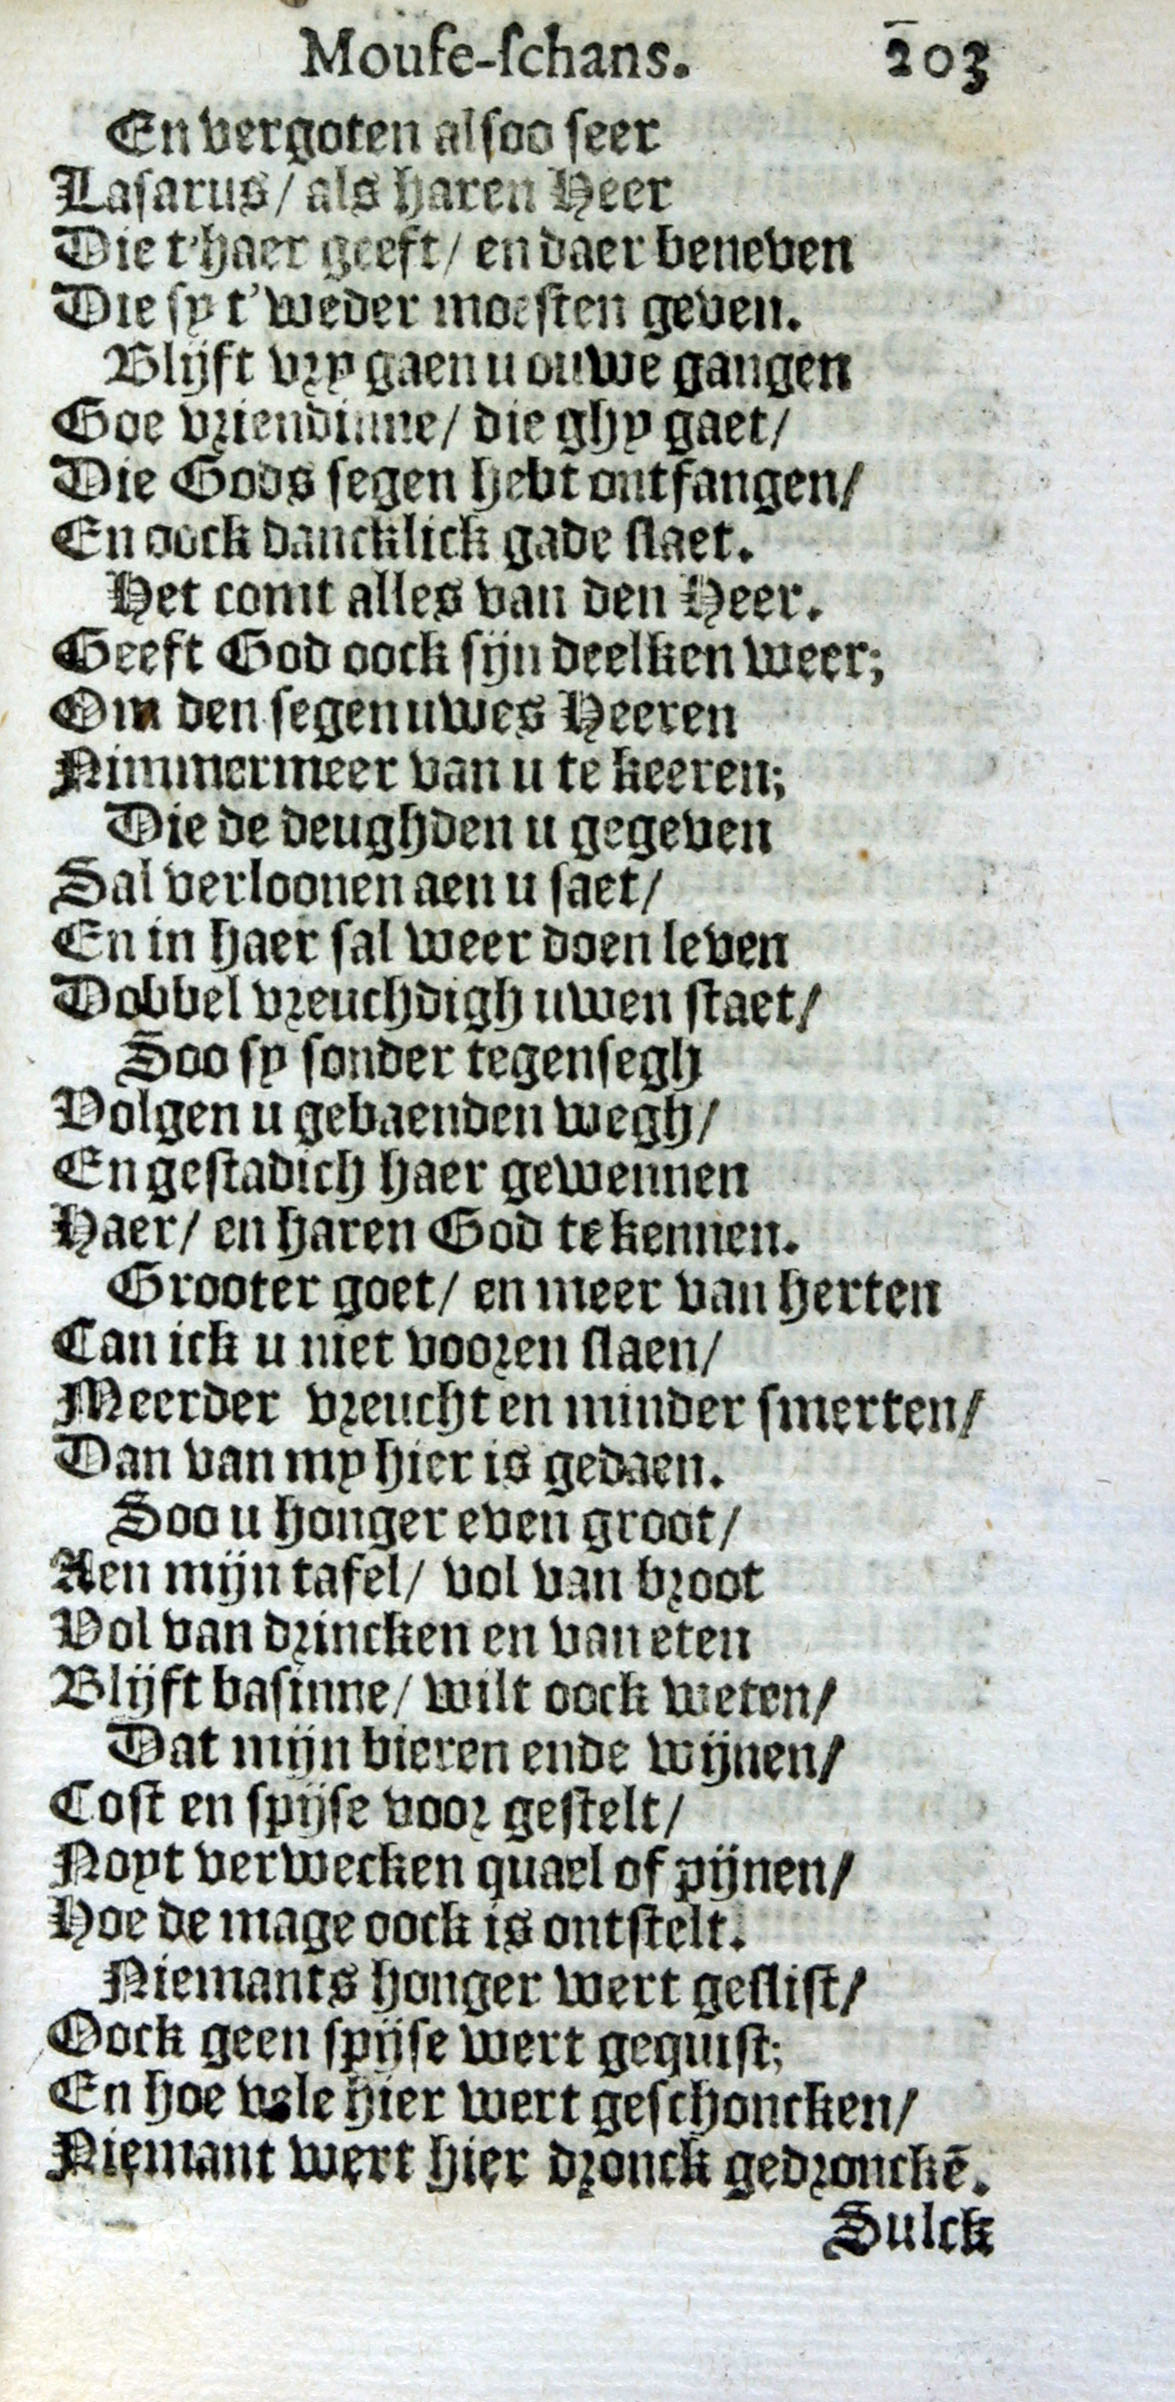 Mouse-schans. 203
En vergoten alsoo seer
Lasarus/ als haren Heer
Die t'haer geeft/ en daer beneven
Die sy t'weder moesten geven.
Blijft vry gaen u ouwe gangen
Goe vriendinne/ die ghy gaet/
Die Gods segen hebt ontfangen/
En oock dancklick gade slaet.
Het comt alles van den Heer.
Geeft God oock sijn deelken weer;
Om den segen uwes Heeren
Nimmermeer van u te keeren;
Die de deughden u gegeven
Sal verloonen aen u saet/
En in haer sal weer doen leven
Dobbel vreuchdigh uwen staet/
Soo sy sonder tegensegh
Volgen u gebaenden wegh/
En gestadich haer gewennen
Haer/ en haren God te kennen.
Grooter goet/ en meer van herten
Can ick u niet vooren slaen/
Meerder vreucht en minder smerten/
Dan van my hier is gedaen.
Soo u honger even groot/
Aen mijn tafel/ vol van broot
Vol van drincken en van eten
Blijft basinne/ wilt oock weten/
Dat mijn bieren ende wijnen/
Cost en spijse voor gestelt/
Noyt verwecken quael of pijnen/
Hoe de mage oock is ontstelt.
Niemants honger wert geslist/
Oock geen spijse wert gequist;
En hoe vele hier wert geschoncken/
Niemant wert hier dronck gedronckē.
Sulck